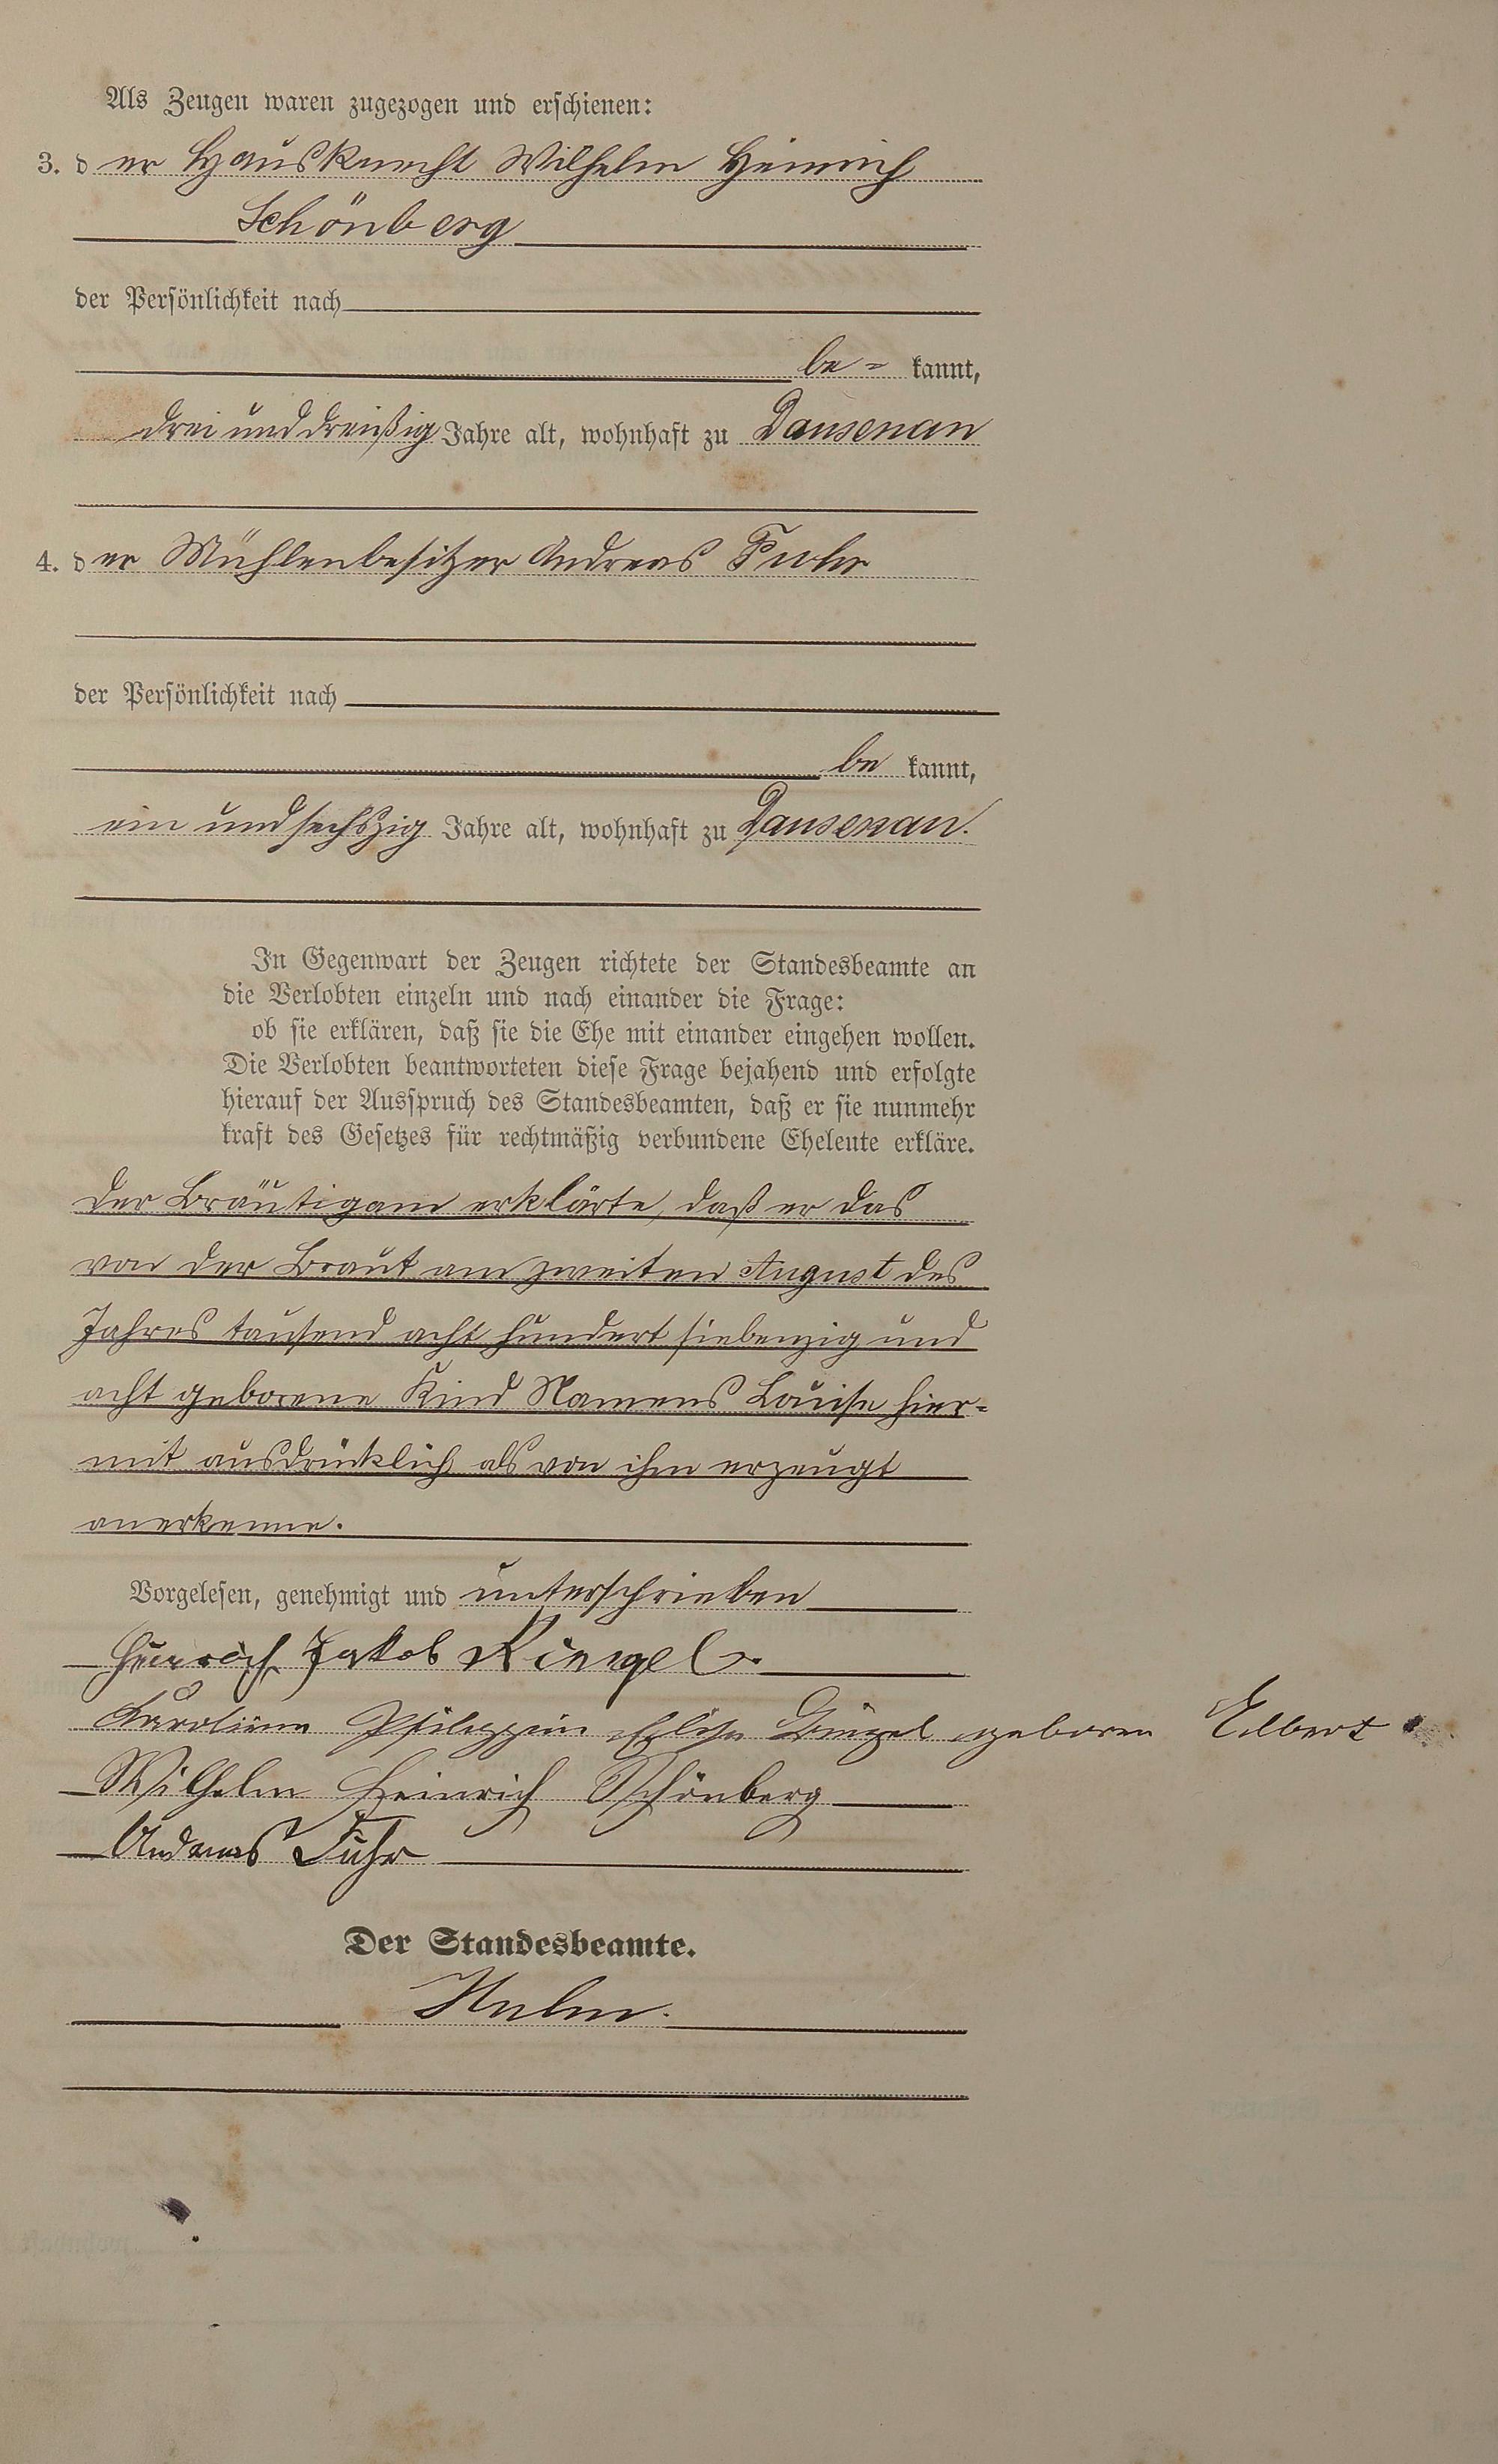 Als Zeugen waren zugezogen und erschienen:
3. der Hausknecht Wilhelm Heinrich
Schönberg
der Persönlichkeit nach
be= kannt,
drei und dreißig Jahre alt, wohnhaft zu Dausenau
4. der Mühlenbesitzer Andreas Fuhr
der Persönlichkeit nach
be kannt,
ein und sechszig Jahre alt, wohnhaft zu Dausenau.
In Gegenwart der Zeugen richtete der Standesbeamte an
die Verlobten einzeln und nach einander die Frage:
ob sie erklären, daß sie die Ehe mit einander eingehen wollen.
Die Verlobten beantworteten diese Frage bejahend und erfolgte
hierauf der Ausspruch des Standesbeamten, daß er sie nunmehr
kraft des Gesetzes für rechtmäßig verbundene Eheleute erkläre.
Der Bräutigam erklärte, daß er das
von der Braut am zweiten August des
Jahres tausend acht hundert siebenzig und
acht geborene Kind Namens Louise hier=
mit ausdrücklich als von ihm erzeugt
anerkenne.
Vorgelesen, genehmigt und unterschrieben
Heinrich Jakob
Karoline geboren Elbert
Wilhelm Heinrich Schönberg
Andreas Fuhr
Der Standesbeamte.